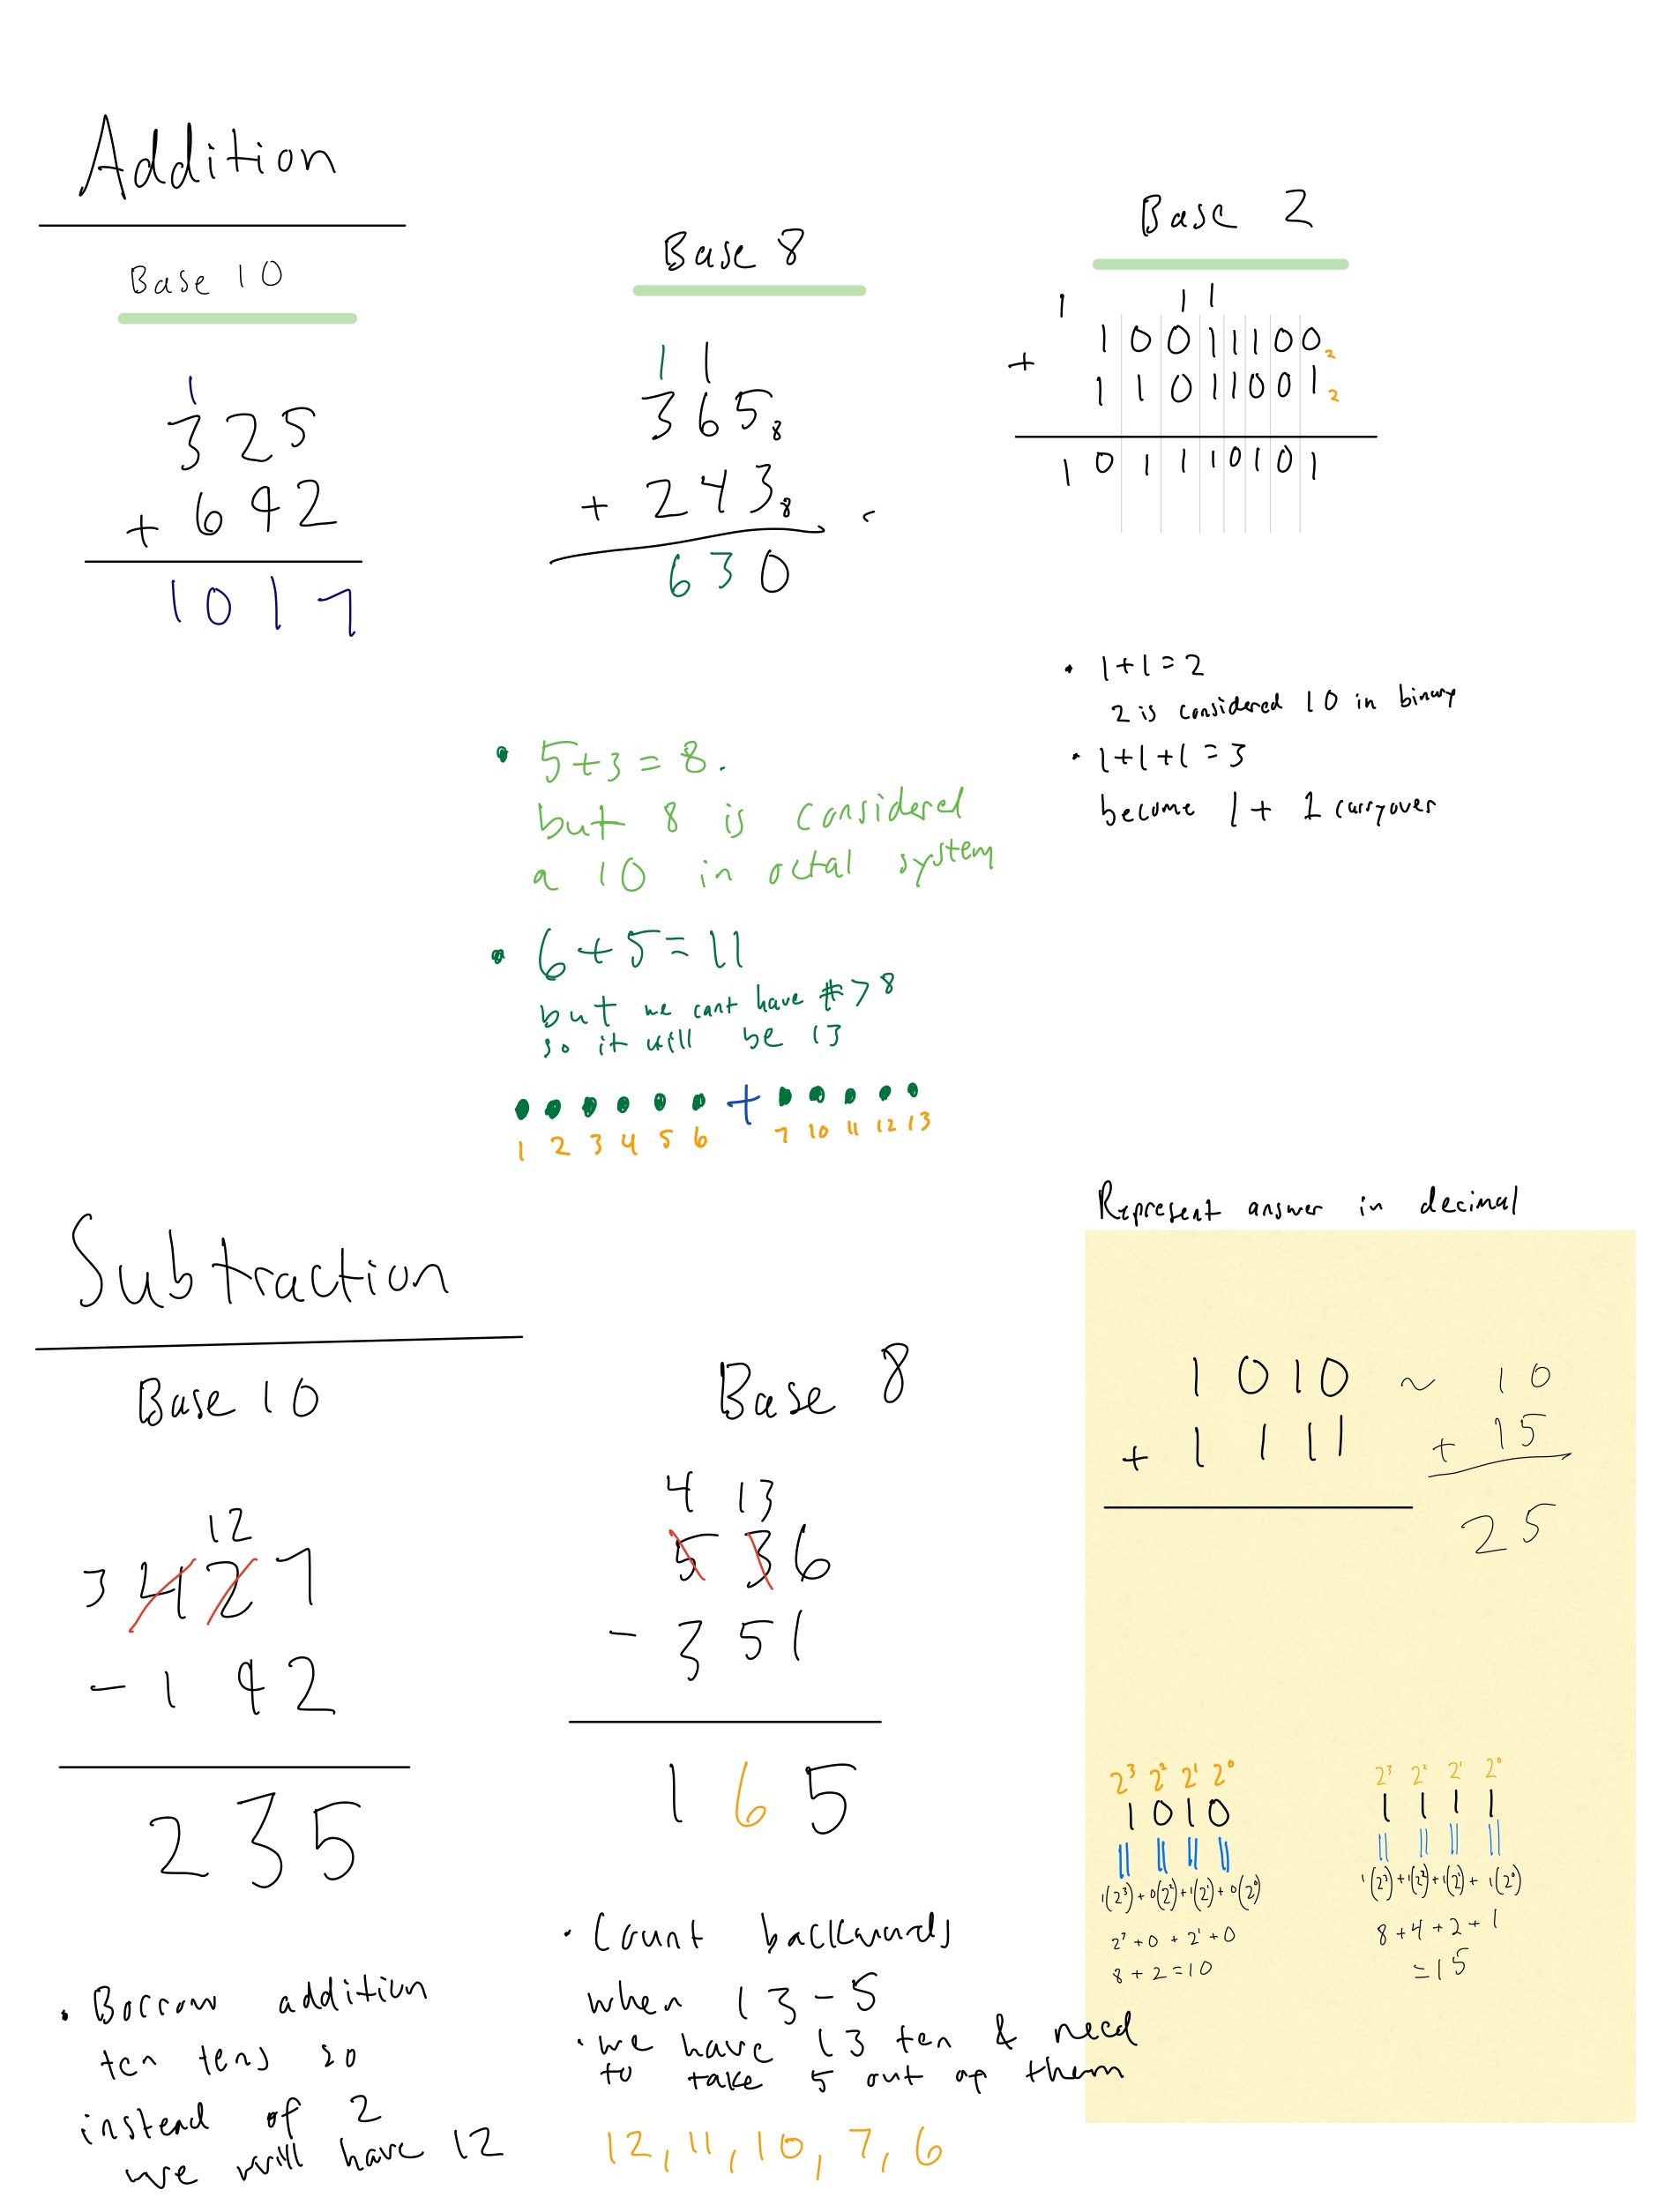 Addition
Base 10
1
325
+ 692
1017
Base 8
1 1
365₈
+ 243₈
630
• 5+3 = 8.
but 8 is considered
a 10 in octal system
• 6+5=11
but we cant have #>8
so it will be 13
+
1 2 3 4 5 6 7 10 11 12 13
Base 2
1 1 1
10011100₂
+ 11011001₂
101110101
• 1+1=2
2 is considered 10 in binary
• 1+1+1=3
become 1+ 1 carryover
Subtraction
Base 10
12
3 427
- 192
235
• Borrow addition
ten tens so
instead of 2
we will have 12
Base 8
4 13
536
- 351
165
• Count backwards
when 13-5
• we have 13 ten & need
to take 5 out of them
12, 11, 10, 7, 6
Represent answer in decimal
1010 ~ 10
+ 1111 + 15
25
2³ 2² 2¹ 2⁰
1010
1(2³)+0(2²)+1(2¹)+0(2⁰)
2³+0+2¹+0
8+2=10
2³ 2² 2¹ 2⁰
1 1 1 1
1(2³)+1(2²)+1(2¹)+1(2⁰)
8+4+2+1
=15